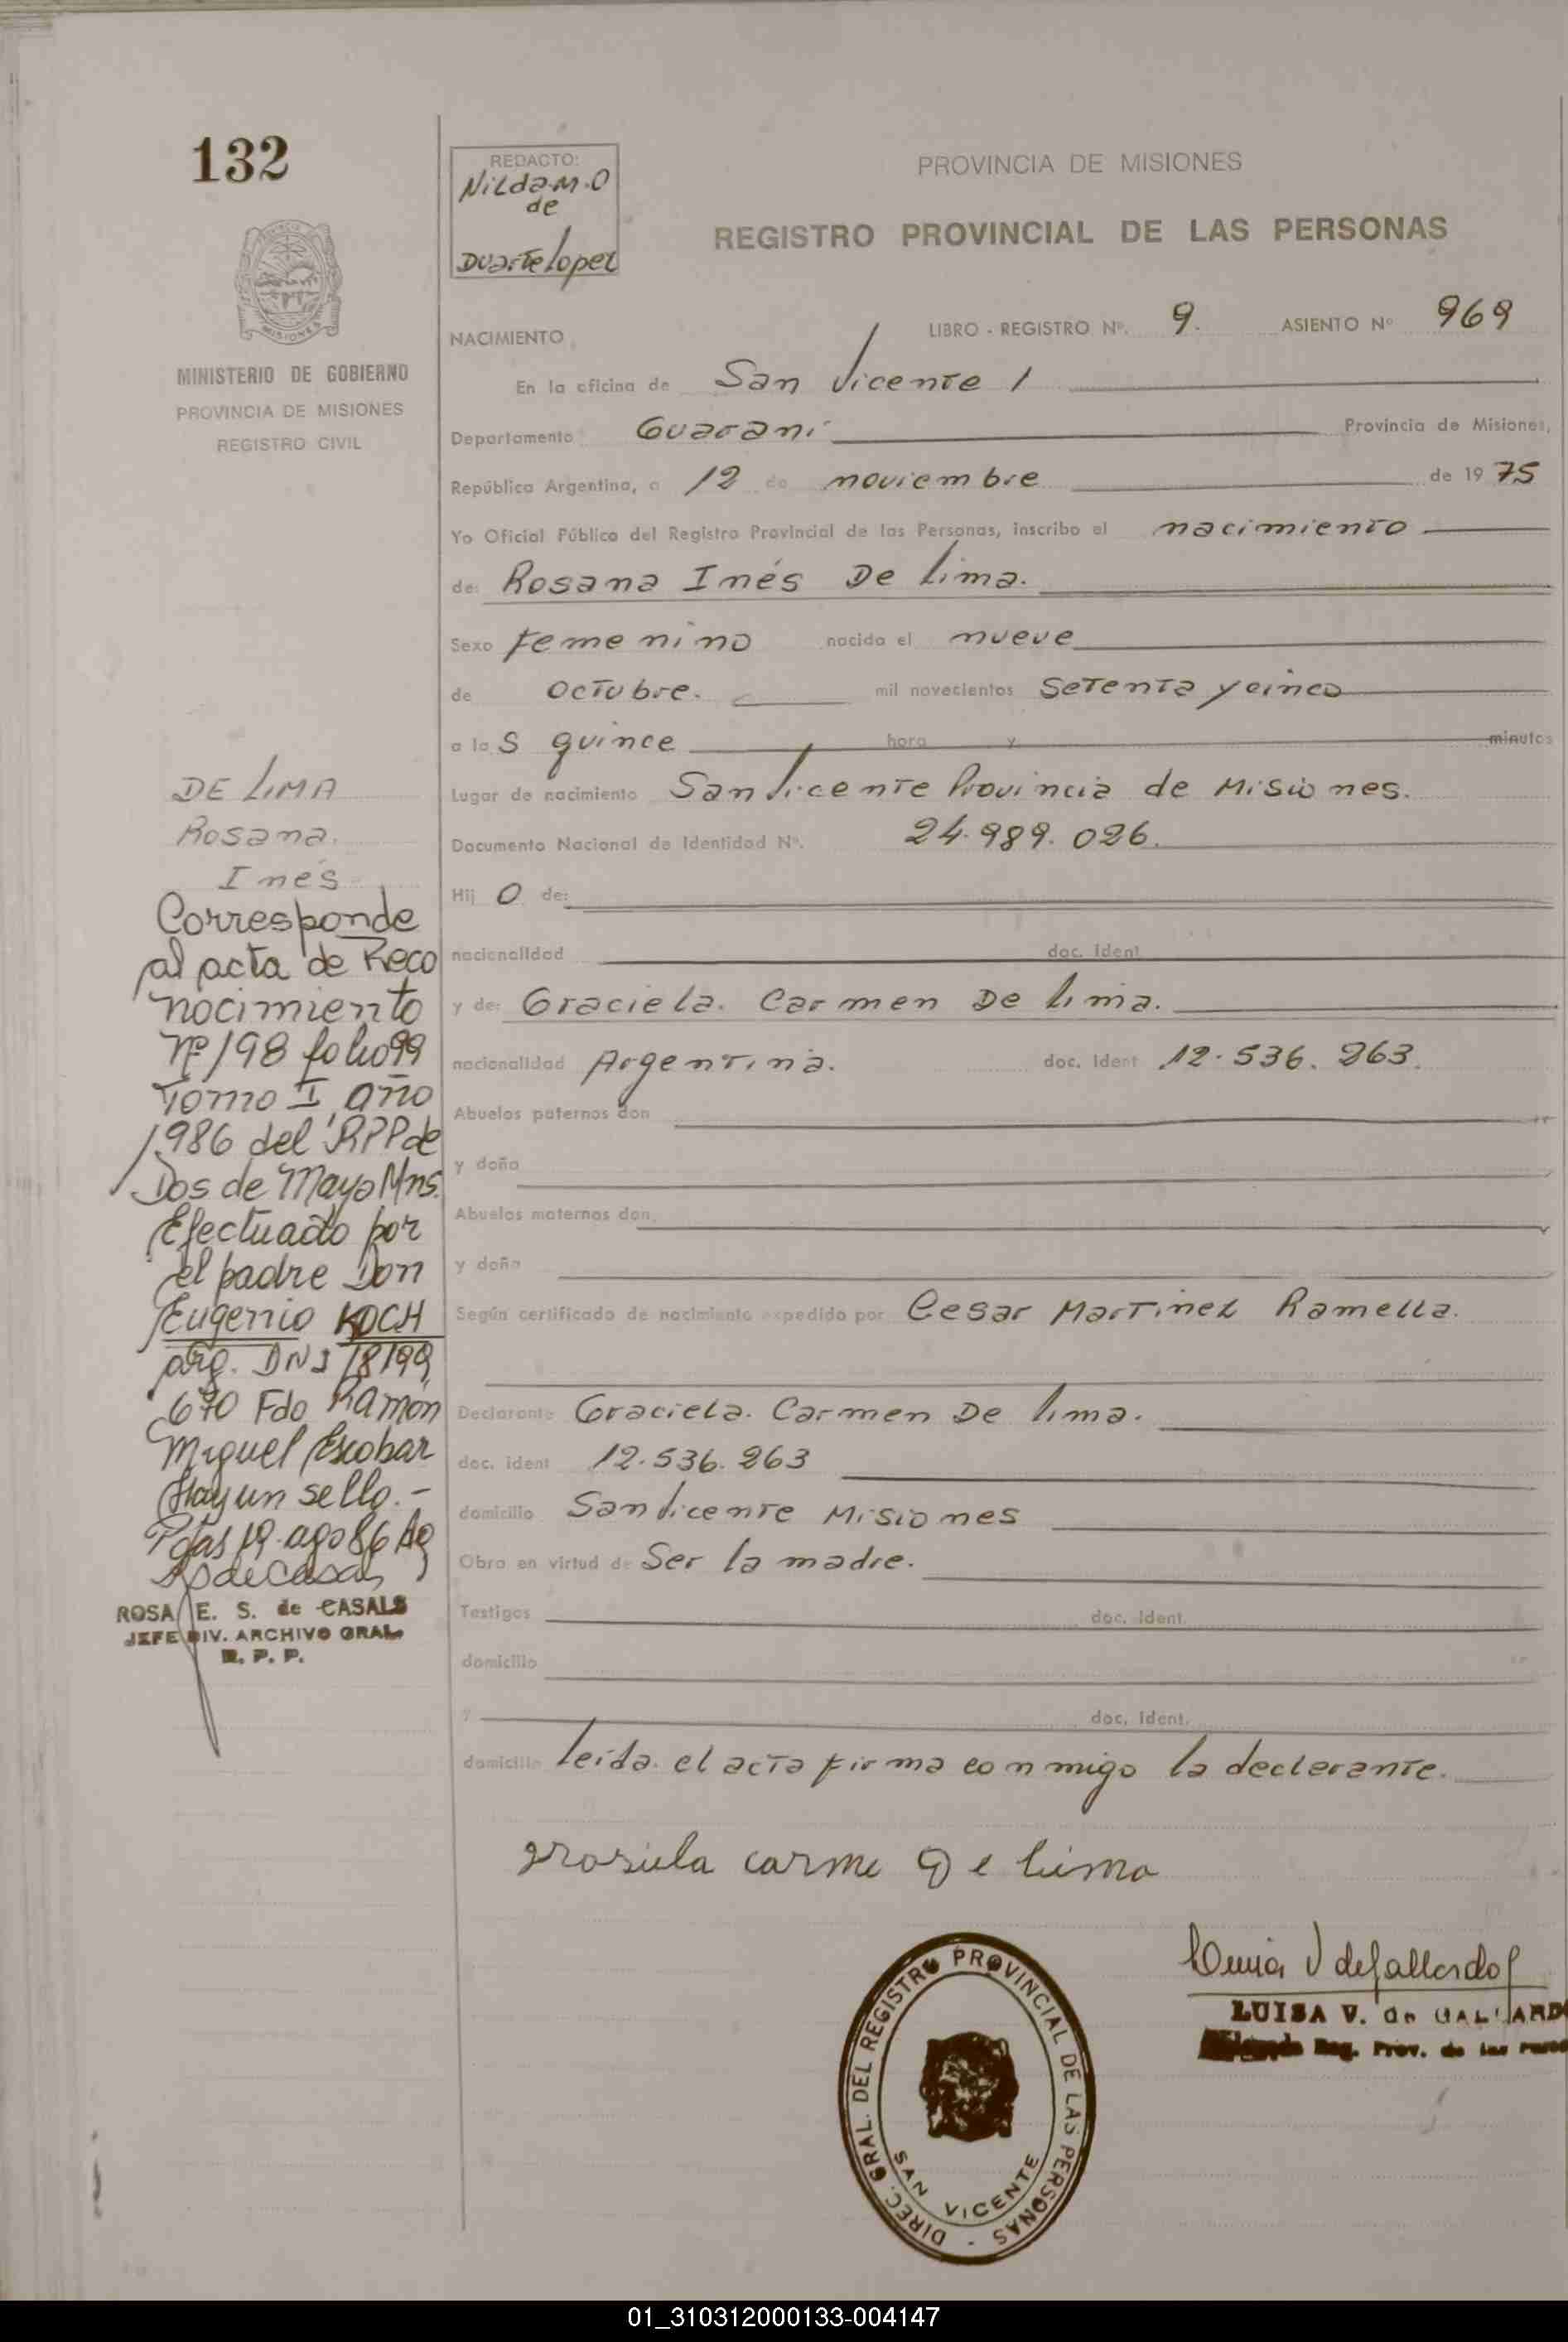 132
REDACTO:
Nilda M. O
de
Duarte Lopez
PROVINCIA DE MISIONES
REGISTRO PROVINCIAL DE LAS PERSONAS
MINISTERIO DE GOBIERNO
PROVINCIA DE MISIONES
REGISTRO CIVIL
NACIMIENTO LIBRO - REGISTRO Nº. 9. ASIENTO Nº 969
En la oficina de San Vicente /
Departamento Guaraní Provincia de Misiones,
República Argentina, a 12 de noviembre de 1975
Yo Oficial Público del Registro Provincial de las Personas, inscribo el nacimiento
de: Rosana Inés De Lima.
Sexo Femenino nacido el nueve
de octubre. mil novecientos setenta y cinco
a las quince hora y minutos
Lugar de nacimiento San Vicente Provincia de Misiones.
Documento Nacional de Identidad Nº. 24.989.026.
Hijo de:
nacionalidad doc. ident.
y de: Graciela. Carmen De Lima.
nacionalidad Argentina. doc. ident 12.536.263.
Abuelos paternos don
y doña
Abuelos maternos don
y doña
Según certificado de nacimiento expedido por Cesar Martinez Ramella.
Declarante Graciela. Carmen De Lima.
doc. ident 12.536.263
domicilio San Vicente Misiones
Obra en virtud de Ser la madre.
Testigos doc. ident.
domicilio
y doc. ident.
domicilio leida el acta firma conmigo la declarante.
DE LIMA
Rosana.
Inés
Corresponde
al acta de Reco
nocimiento
Nº 198 folio 99
Tomo I año
1986 del RPP de
Dos de Mayo Mns.
Efectuado por
el padre Don
Eugenio KOCH
arg. DNI 18199
670 Fdo Ramón
Miguel Escobar
Hay un sello.-
Pdas 19 ago 86
ROSA E. S. de CASALS
JEFE DIV. ARCHIVO GRAL.
R. P. P.
grasiela carme De Lima
Luisa V de Gallardo
LUISA V. de GALLARD
Reg. Prov. de las
DIREC. GRAL. DEL REGISTRO PROVINCIAL DE LAS PERSONAS -
SAN VICENTE
01_310312000133-004147